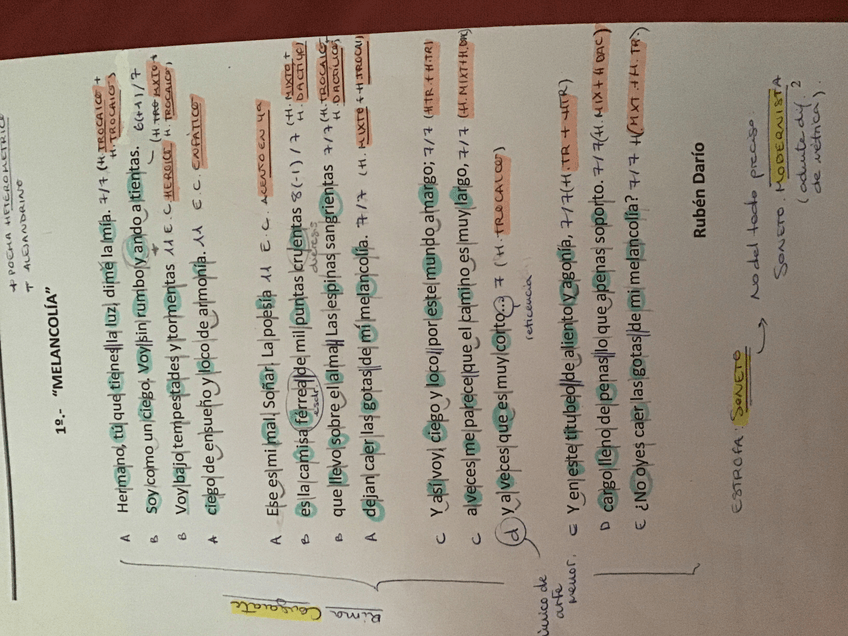 + POEMA HETEROMÉTRICO
T ALEJANDRINO
1º.- “MELANCOLÍA”
A Hermano, tú que tienes la luz, dime la mía. 7/7 (H. TROCAICO + H. TROCAICO)
B Soy como un ciego. Voy sin rumbo y ando a tientas. 6(+1)/7 (H. MIXTO + H. TROCAICO)
B Voy bajo tempestades y tormentas 11 E.C. HEROICO
A ciego de ensueño y loco de armonía. 11 E.C. ENFÁTICO
A Ese es mi mal. Soñar. La poesía 11 E.C. ACENTO EN 4ª
B es la camisa férrea de mil puntas cruentas 8(-1)/7 (H. MIXTO + H. DACTÍLICO)
diéresis
B que llevo sobre el alma. Las espinas sangrientas 7/7 (H. TROCAICO + H. DACTÍLICO)
A dejan caer las gotas de mi melancolía. 7/7 (H. MIXTO + H. TROCAI)
C Y así voy, ciego y loco, por este mundo amargo; 7/7 (H TR + H. TR)
C a veces me parece que el camino es muy largo, 7/7 (H. MIXT + H. DAC)
d y a veces que es muy corto... 7 (H. TROCAICO)
reticencia
C Y en este titubeo de aliento y agonía, 7/7 (H. TR + H TR)
D cargo lleno de penas lo que apenas soporto. 7/7 (H. MIX + H DAC)
E ¿No oyes caer las gotas de mi melancolía? 7/7 H (MXT + H. TR.)
Rubén Darío
Rima Consonante
único de arte menor.
ESTROFA: SONETO → No del todo preciso
SONETO MODERNISTA
de métrica).